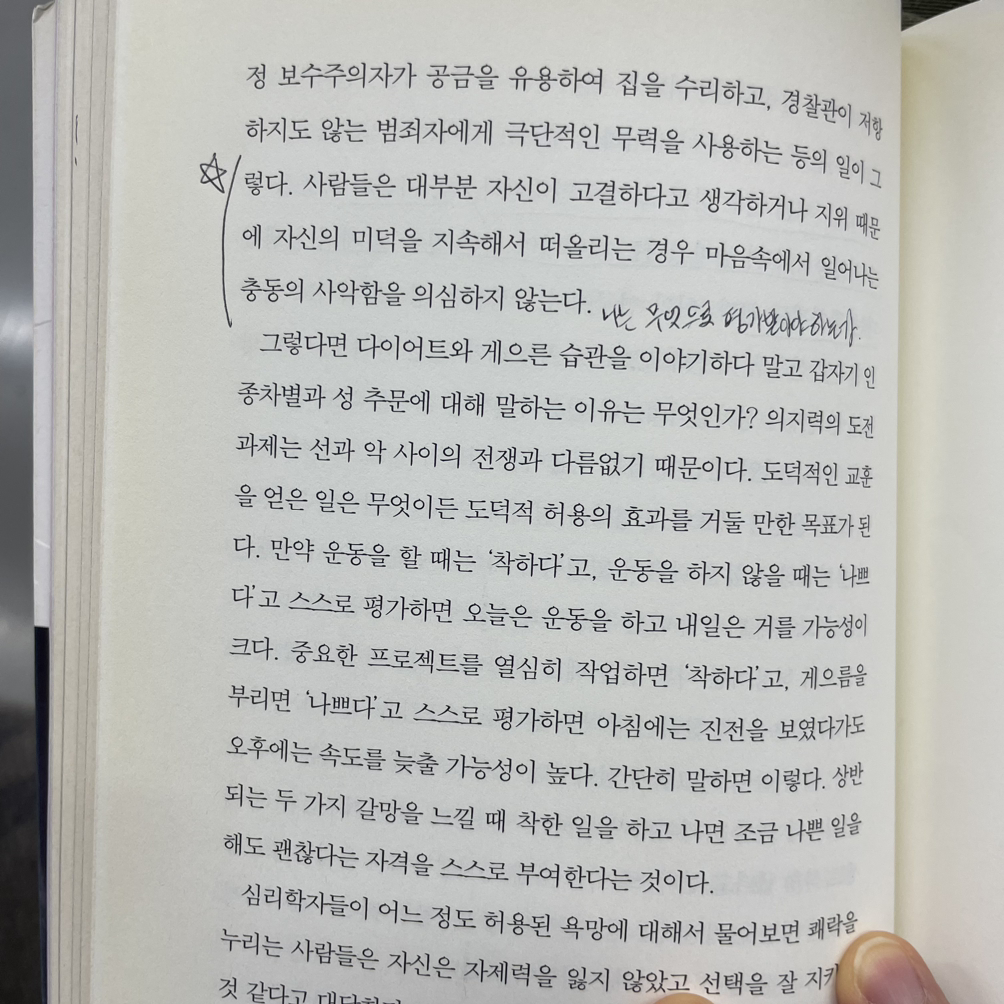 정 보수주의자가 공금을 유용하여 집을 수리하고, 경찰관이 저항
하지도 않는 범죄자에게 극단적인 무력을 사용하는 등의 일이 그
렇다. 사람들은 대부분 자신이 고결하다고 생각하거나 지위 때문
에 자신의 미덕을 지속해서 떠올리는 경우 마음속에서 일어나는
충동의 사악함을 의심하지 않는다.
나는 무엇으로 평가받아야 하는가.
그렇다면 다이어트와 게으른 습관을 이야기하다 말고 갑자기 인
종차별과 성 추문에 대해 말하는 이유는 무엇인가? 의지력의 도전
과제는 선과 악 사이의 전쟁과 다름없기 때문이다. 도덕적인 교훈
을 얻은 일은 무엇이든 도덕적 허용의 효과를 거둘 만한 목표가 된
다. 만약 운동을 할 때는 ‘착하다’고, 운동을 하지 않을 때는 ‘나쁘
다’고 스스로 평가하면 오늘은 운동을 하고 내일은 거를 가능성이
크다. 중요한 프로젝트를 열심히 작업하면 ‘착하다’고, 게으름을
부리면 ‘나쁘다’고 스스로 평가하면 아침에는 진전을 보였다가도
오후에는 속도를 늦출 가능성이 높다. 간단히 말하면 이렇다. 상반
되는 두 가지 갈망을 느낄 때 착한 일을 하고 나면 조금 나쁜 일을
해도 괜찮다는 자격을 스스로 부여한다는 것이다.
심리학자들이 어느 정도 허용된 욕망에 대해서 물어보면 쾌락을
누리는 사람들은 자신은 자제력을 잃지 않았고 선택을 잘 지키
것 같다고